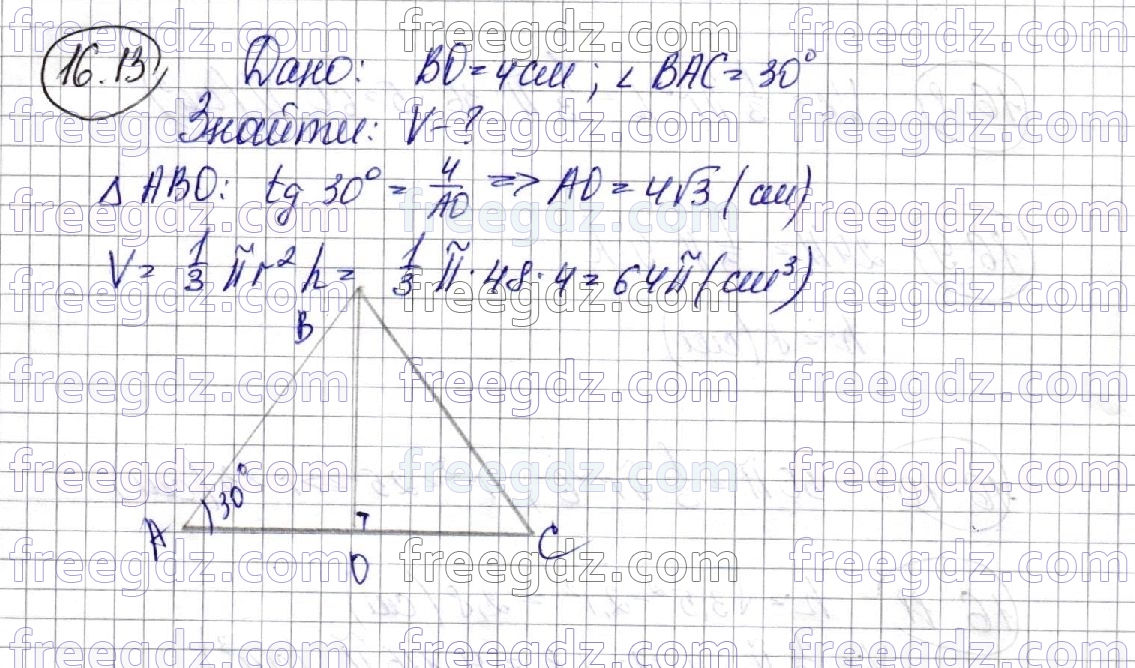 16.13, Дано: BO = 4 см; ∠ BAC = 30°
Знайти: V - ?
Δ ABO: tg 30° = 4/AO => AO = 4√3 (см)
V = 1/3 πr² h = 1/3 π · 48 · 4 = 64π (см³)
B
30°
A
O
C
freegdz.com